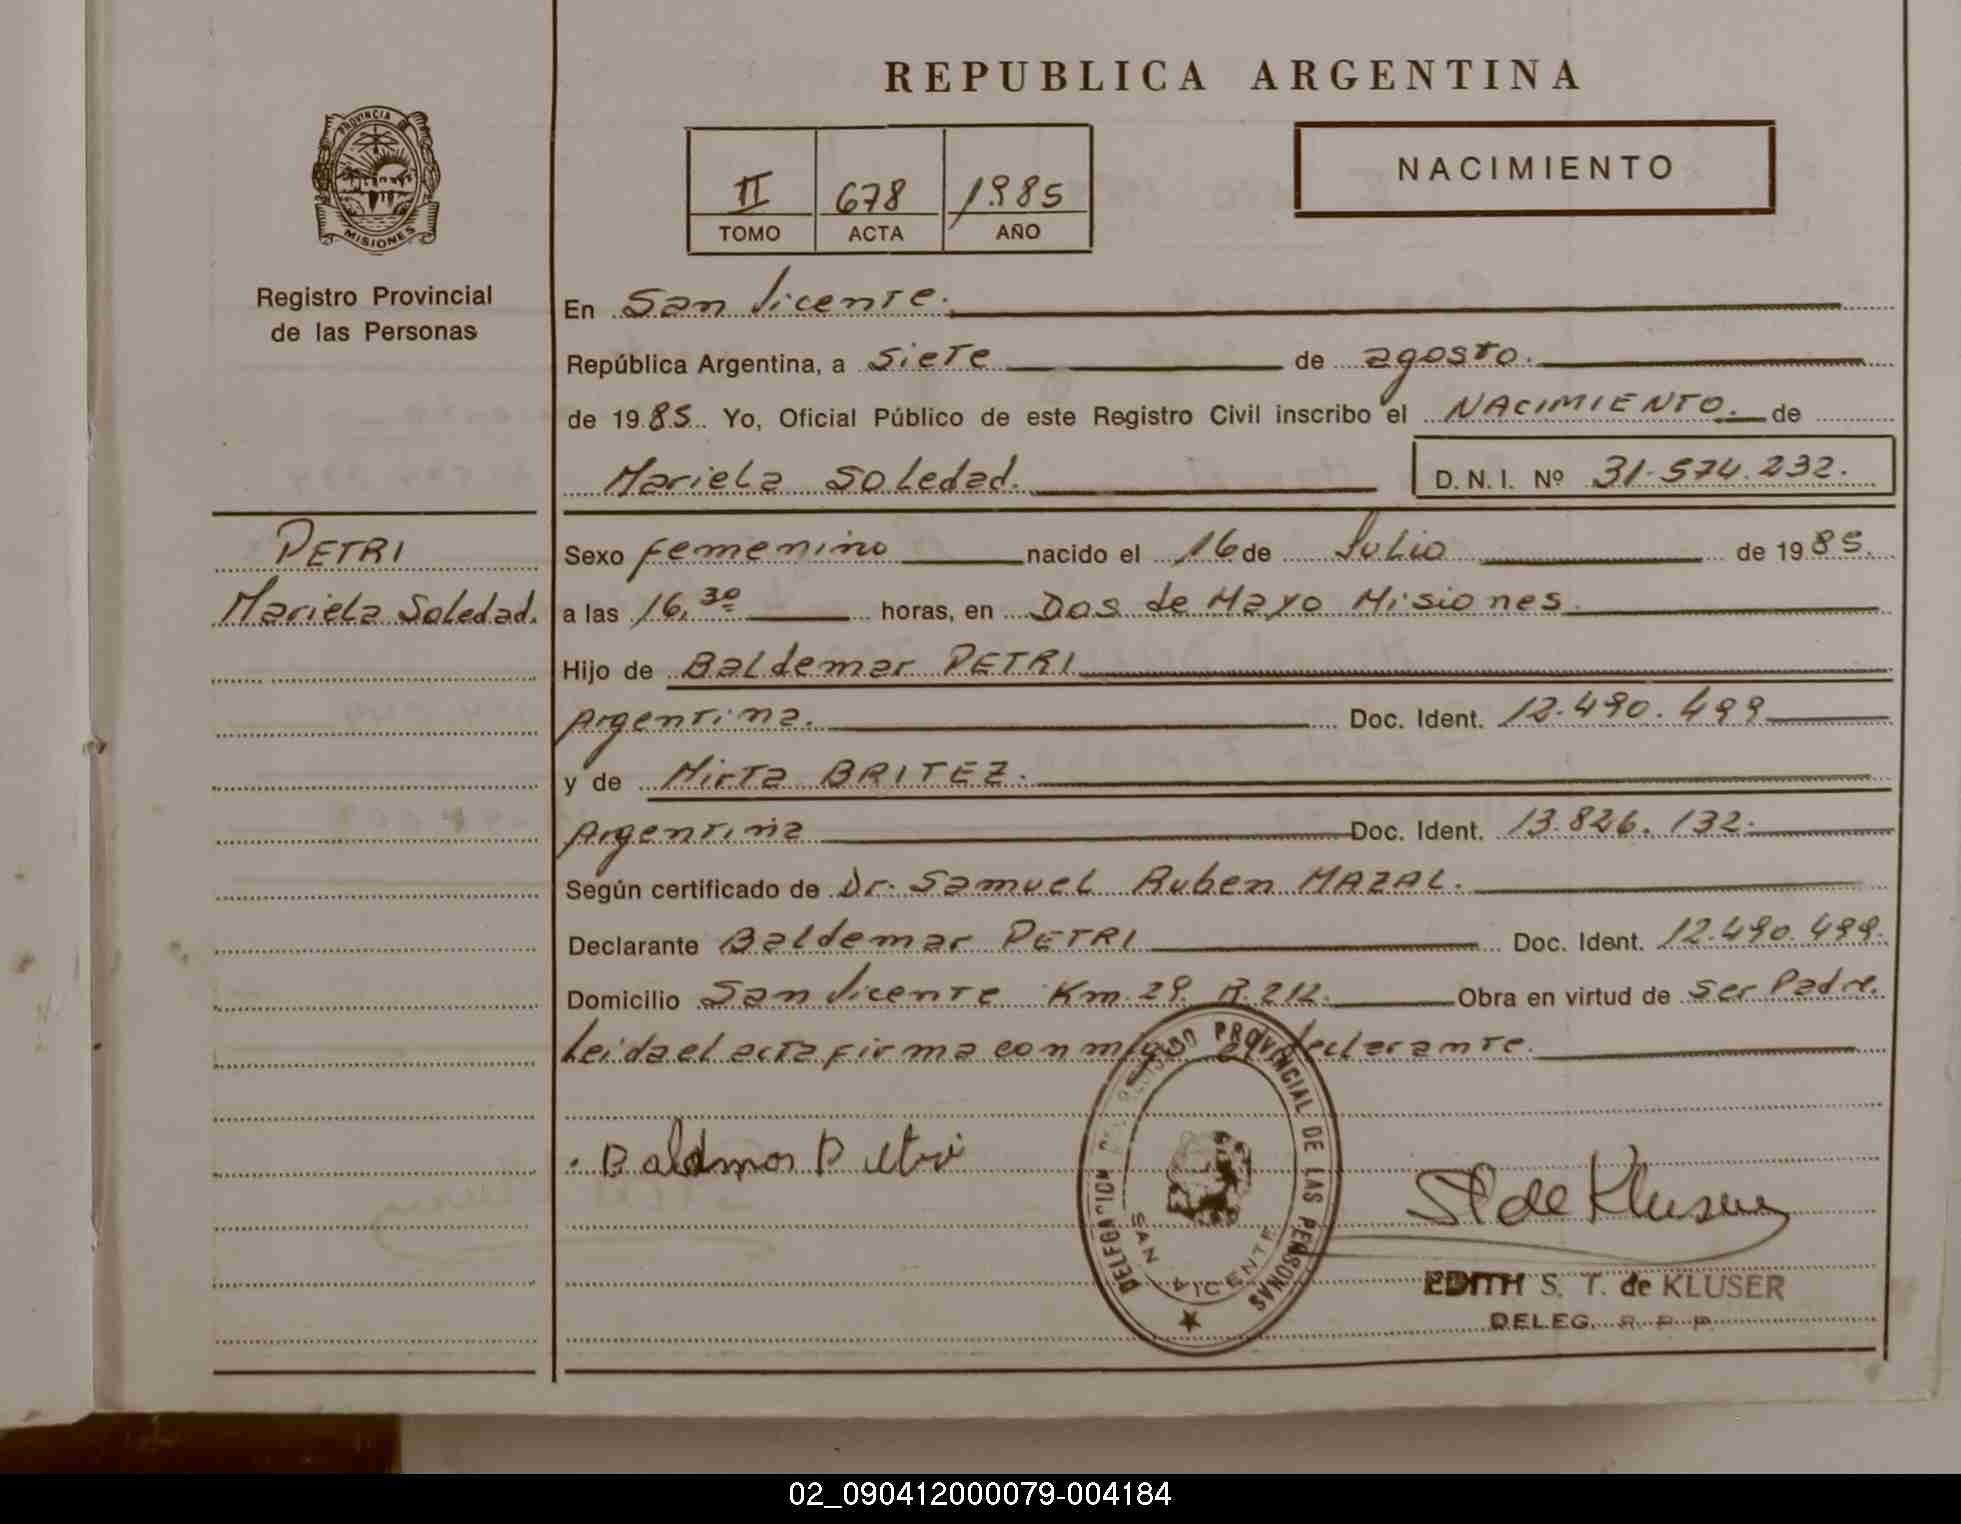 REPUBLICA ARGENTINA
PROVINCIA DE
MISIONES
Registro Provincial
de las Personas
II 678 1985
TOMO ACTA AÑO
NACIMIENTO
En San Vicente.
República Argentina, a siete de agosto.
de 1985. Yo, Oficial Público de este Registro Civil inscribo el NACIMIENTO. de
Mariela Soledad. D. N. I. Nº 31.574.232.
PETRI
Mariela Soledad.
Sexo femenino nacido el 16 de Julio de 1985.
a las 16,30 horas, en Dos de Mayo Misiones.
Hijo de Baldemar PETRI
Argentina. Doc. Ident. 12.490.499
y de Mirta BRITEZ.
Argentina Doc. Ident. 13.826.132.
Según certificado de Dr. Samuel Ruben MAZAL.
Declarante Baldemar PETRI Doc. Ident. 12.490.499.
Domicilio San Vicente Km. 29. R. 212. Obra en virtud de ser Padre.
Leida el acta firma conmigo el declarante.
DELEGACION DEL REGISTRO PROVINCIAL DE LAS PERSONAS
SAN VICENTE
EDITH S. T. de KLUSER
DELEG. R. P. P.
02_090412000079-004184